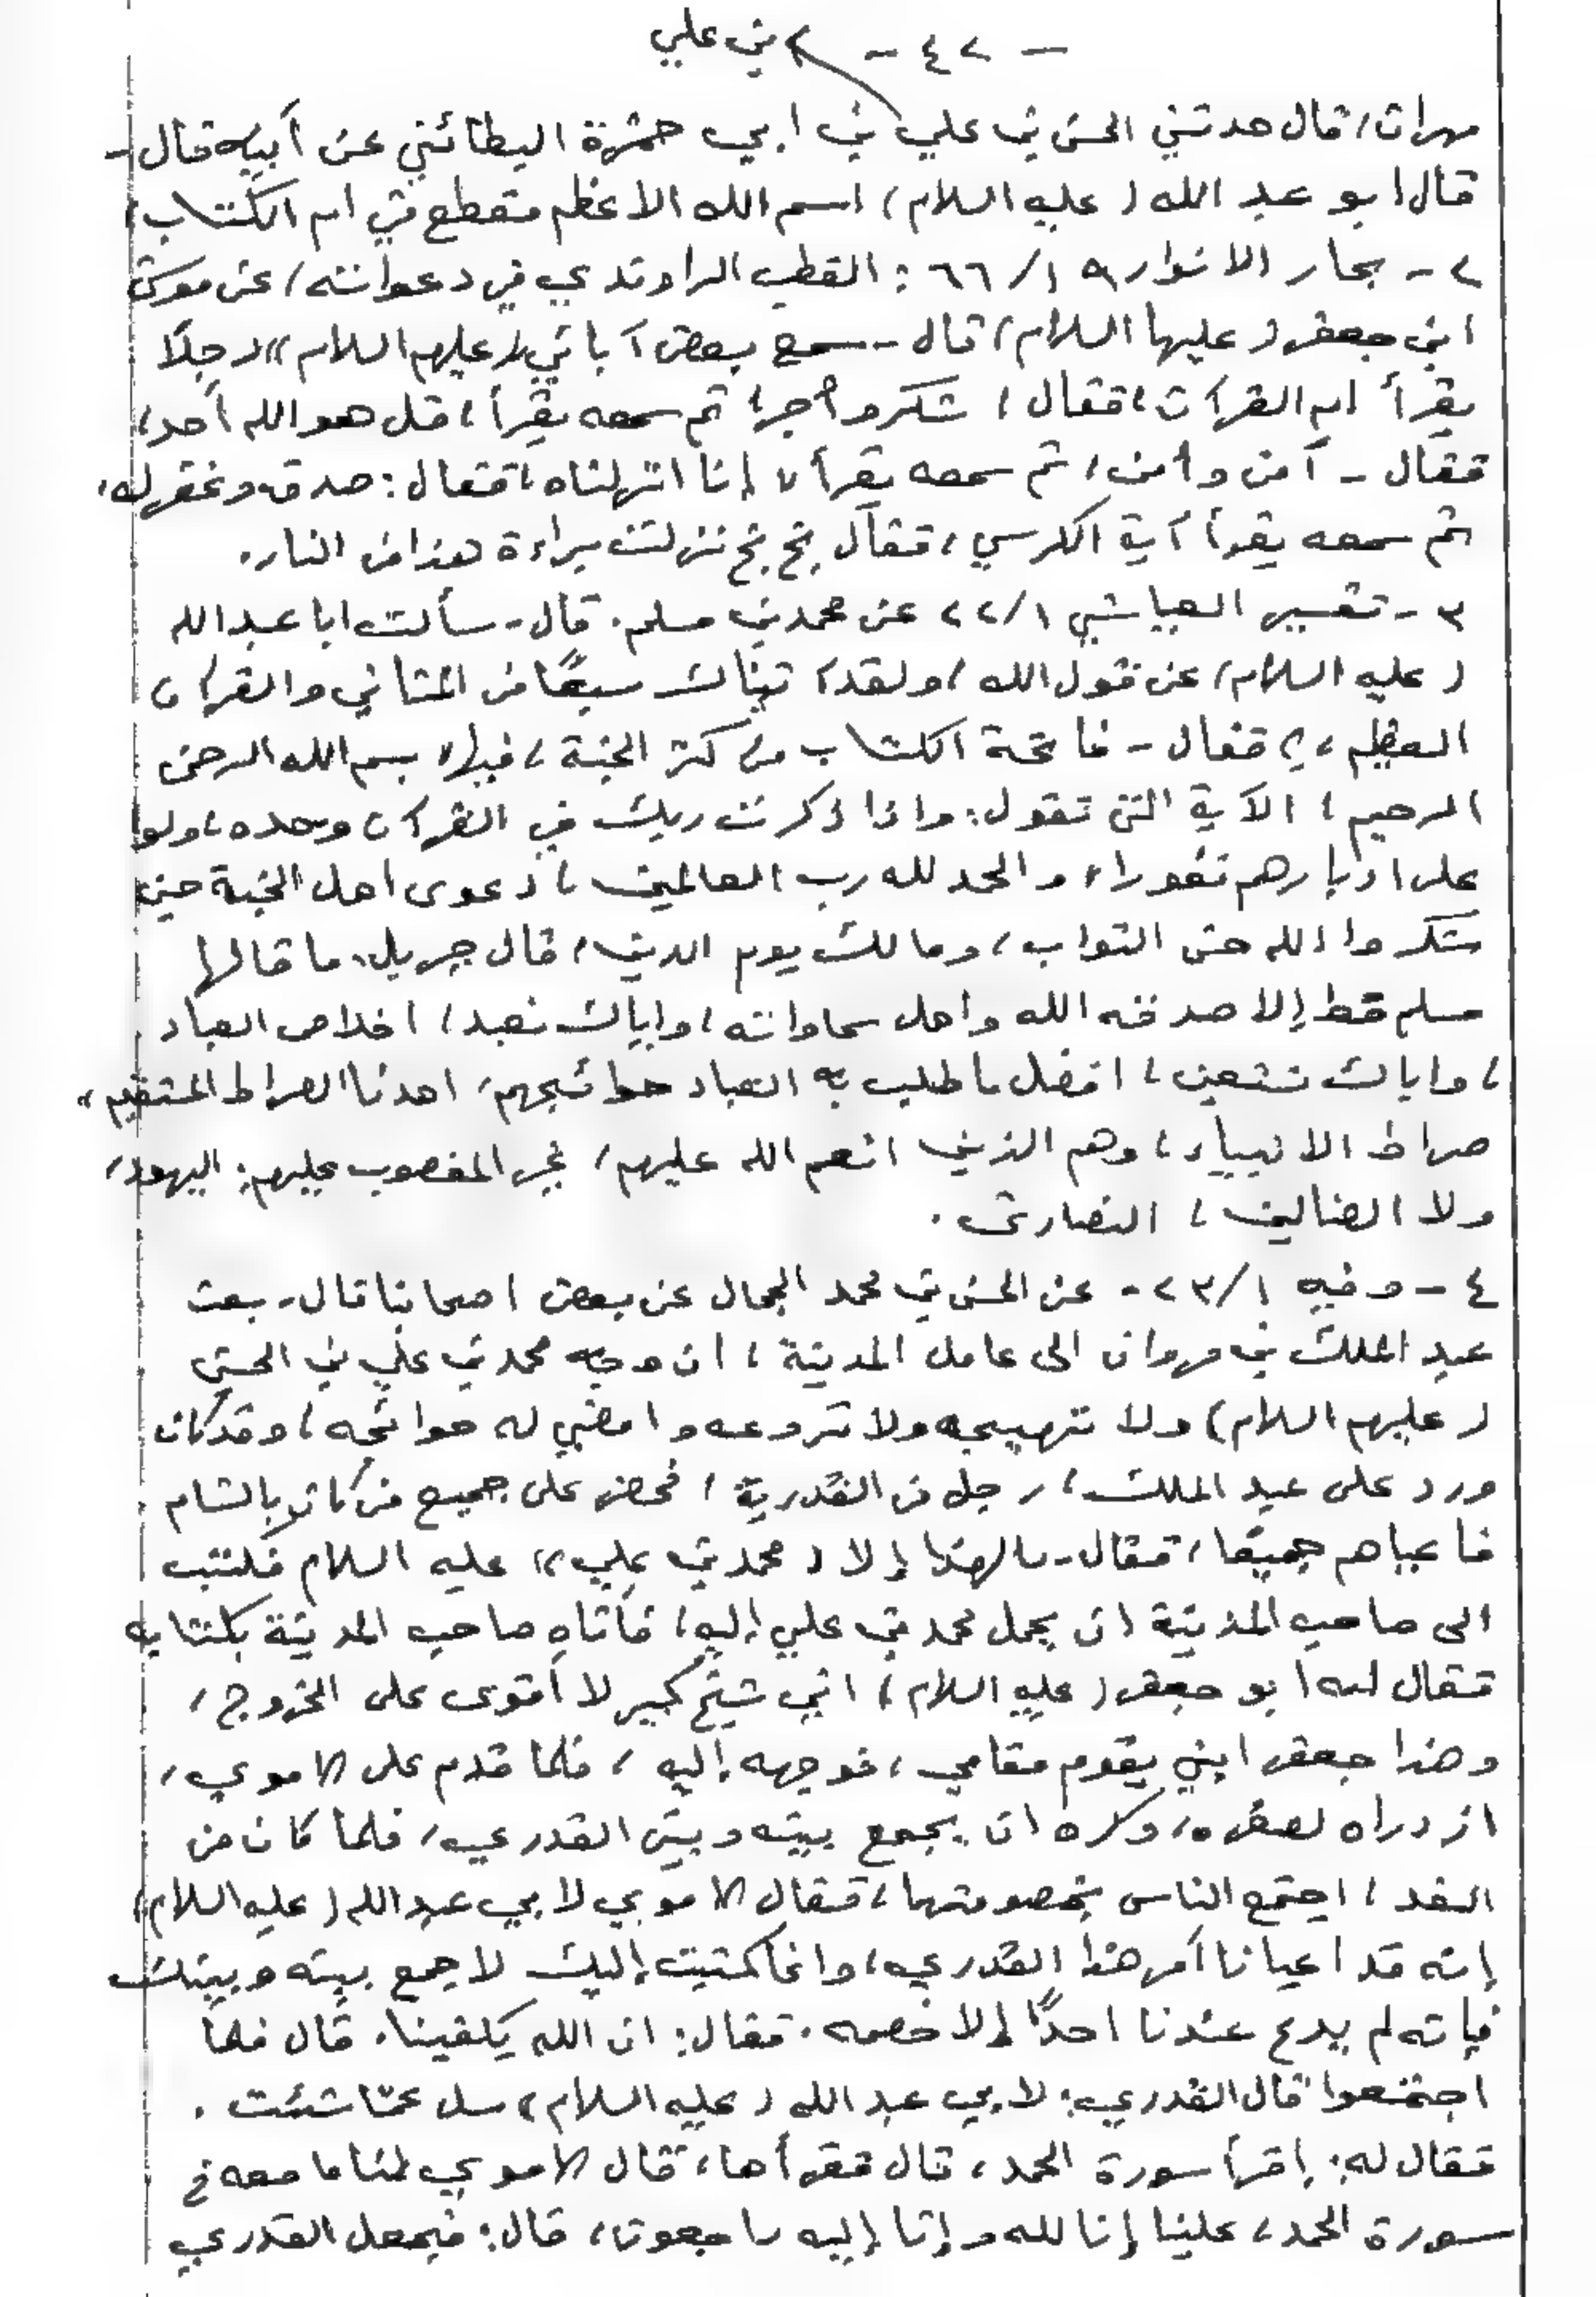 - ٤٢ - بن علي
مهران، قال حدثني الحسن بن علي بن ابي حمزة البطائني عن أبيه قال-
قال ابو عبد الله (عليه السلام) اسم الله الاعظم مقطع في ام الكتاب،
٢- بحار الانوار ٩١/ ٦٦: القطب الراوندي في دعواته، عن موسى
ابن جعفر (عليهما السلام) قال- سمع بعض آبائي (عليهم السلام)) رجلًا
يقرأ ام القرآن، فقال، شكر وأجر، ثم سمعه يقرأ، قل هو الله أحد،
فقال - آمن وأمن، ثم سمعه يقرأ، إنا انزلناه، فقال: صدق وغفر له،
ثم سمعه يقرأ آية الكرسي، فقال بخ بخ نزلت براءة هذا من النار.
٣- تفسير العياشي ٢٢/١ عن محمد بن مسلم. قال- سألت ابا عبد الله
(عليه السلام) عن قول الله، ولقد آتيناك سبعًا من المثاني والقرآن
العظيم، فقال - فاتحة الكتاب من كنز الجنة، فيها، بسم الله الرحمن
الرحيم، الآية التي تقول: واذا ذكرت ربك في القرآن وحده، ولوا
على ادبارهم نفورا، والحمد لله رب العالمين، دعوى اهل الجنة حين
شكروا الله حسن الثواب، ومالك يوم الدين، قال جبريل، ما قالها
مسلم قط إلا صدقه الله واهل سماواته، واياك نعبد، اخلاص العباد
، واياك نستعين، افضل ما طلب به العباد حوائجهم، اهدنا الصراط المستقيم،
صراط الانبياء، وهم الذين انعم الله عليهم، غير المغضوب عليهم: اليهود،
ولا الضالين، النصارى.
٤- وفيه ٢٣/١- عن الحسن بن محمد الجمال عن بعض اصحابنا قال- بعث
عبد الملك بن مروان الى عامل المدينة، ان وجه محمد بن علي بن الحسين
(عليهم السلام) ولا تهيجه ولا تروعه وامضي له حوائجه، وقد كان
ورد على عبد الملك، رجل من القدرية، فحضر على جميع من كان بالشام
فأعياهم جميعًا، فقال- ما لهذا إلا (محمد بن علي)) عليه السلام فكتب
الى صاحب المدينة ان يحمل محمد بن علي إليه، فأتاه صاحب المدينة بكتابه
فقال له ابو جعفر (عليه السلام) اني شيخ كبير لا أقوى على الخروج،
وهذا جعفر ابني يقوم مقامي، فوجهه إليه، فلما قدم على الاموي،
ازدراه لصغره، وكره ان يجمع بينه وبين القدري، فلما كان من
الغد، اجتمع الناس بخصومتهما، فقال الاموي لابي عبد الله (عليه السلام)
إنه قد اعيانا أمر هذا القدري، وانما كتبت إليك لاجمع بينه وبينك
فإنه لم يدع عندنا احدًا إلا خصمه. فقال: ان الله يكفينا. قال فلما
اجتمعوا قال القدري: لابي عبد الله (عليه السلام) سل عما شئت.
فقال له: إقرأ سورة الحمد، قال فقرأها، فقال الاموي لنا ما معه في
سورة الحمد، علينا إنا لله وإنا إليه راجعون، قال: فيجعل القدري